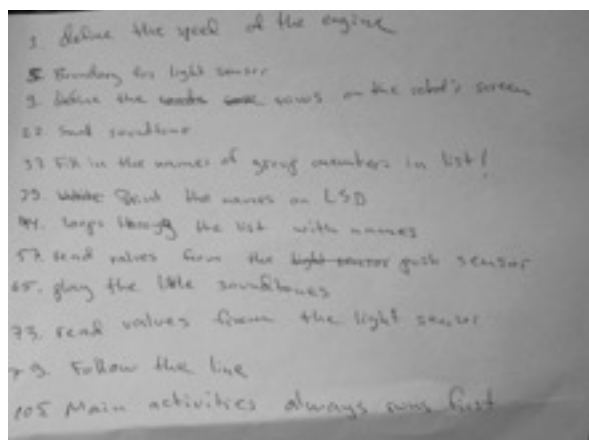 3. define the speed of the engine
5 Boundary for light sensor
9. define the rows on the robot's screen
22 Send soundtone
37 Fill in the names of group members in list!
39. Print the names on LSD
44. loops through the list with names
57. read values form the push sensor
65. play the little soundtones
73. read values from the light sensor
79. Follow the line
105 Main activities always runs first